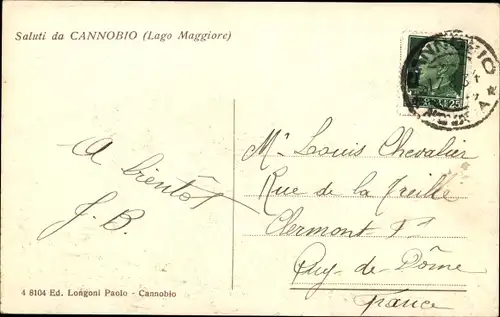 Saluti da CANNOBIO (Lago Maggiore)
A bientôt
J. B.
Mr Louis Chevalier
Rue de la Treille
Clermont Fd
Puy-de-Dôme
France
4 8104 Ed. Longoni Paolo - Cannobio
25